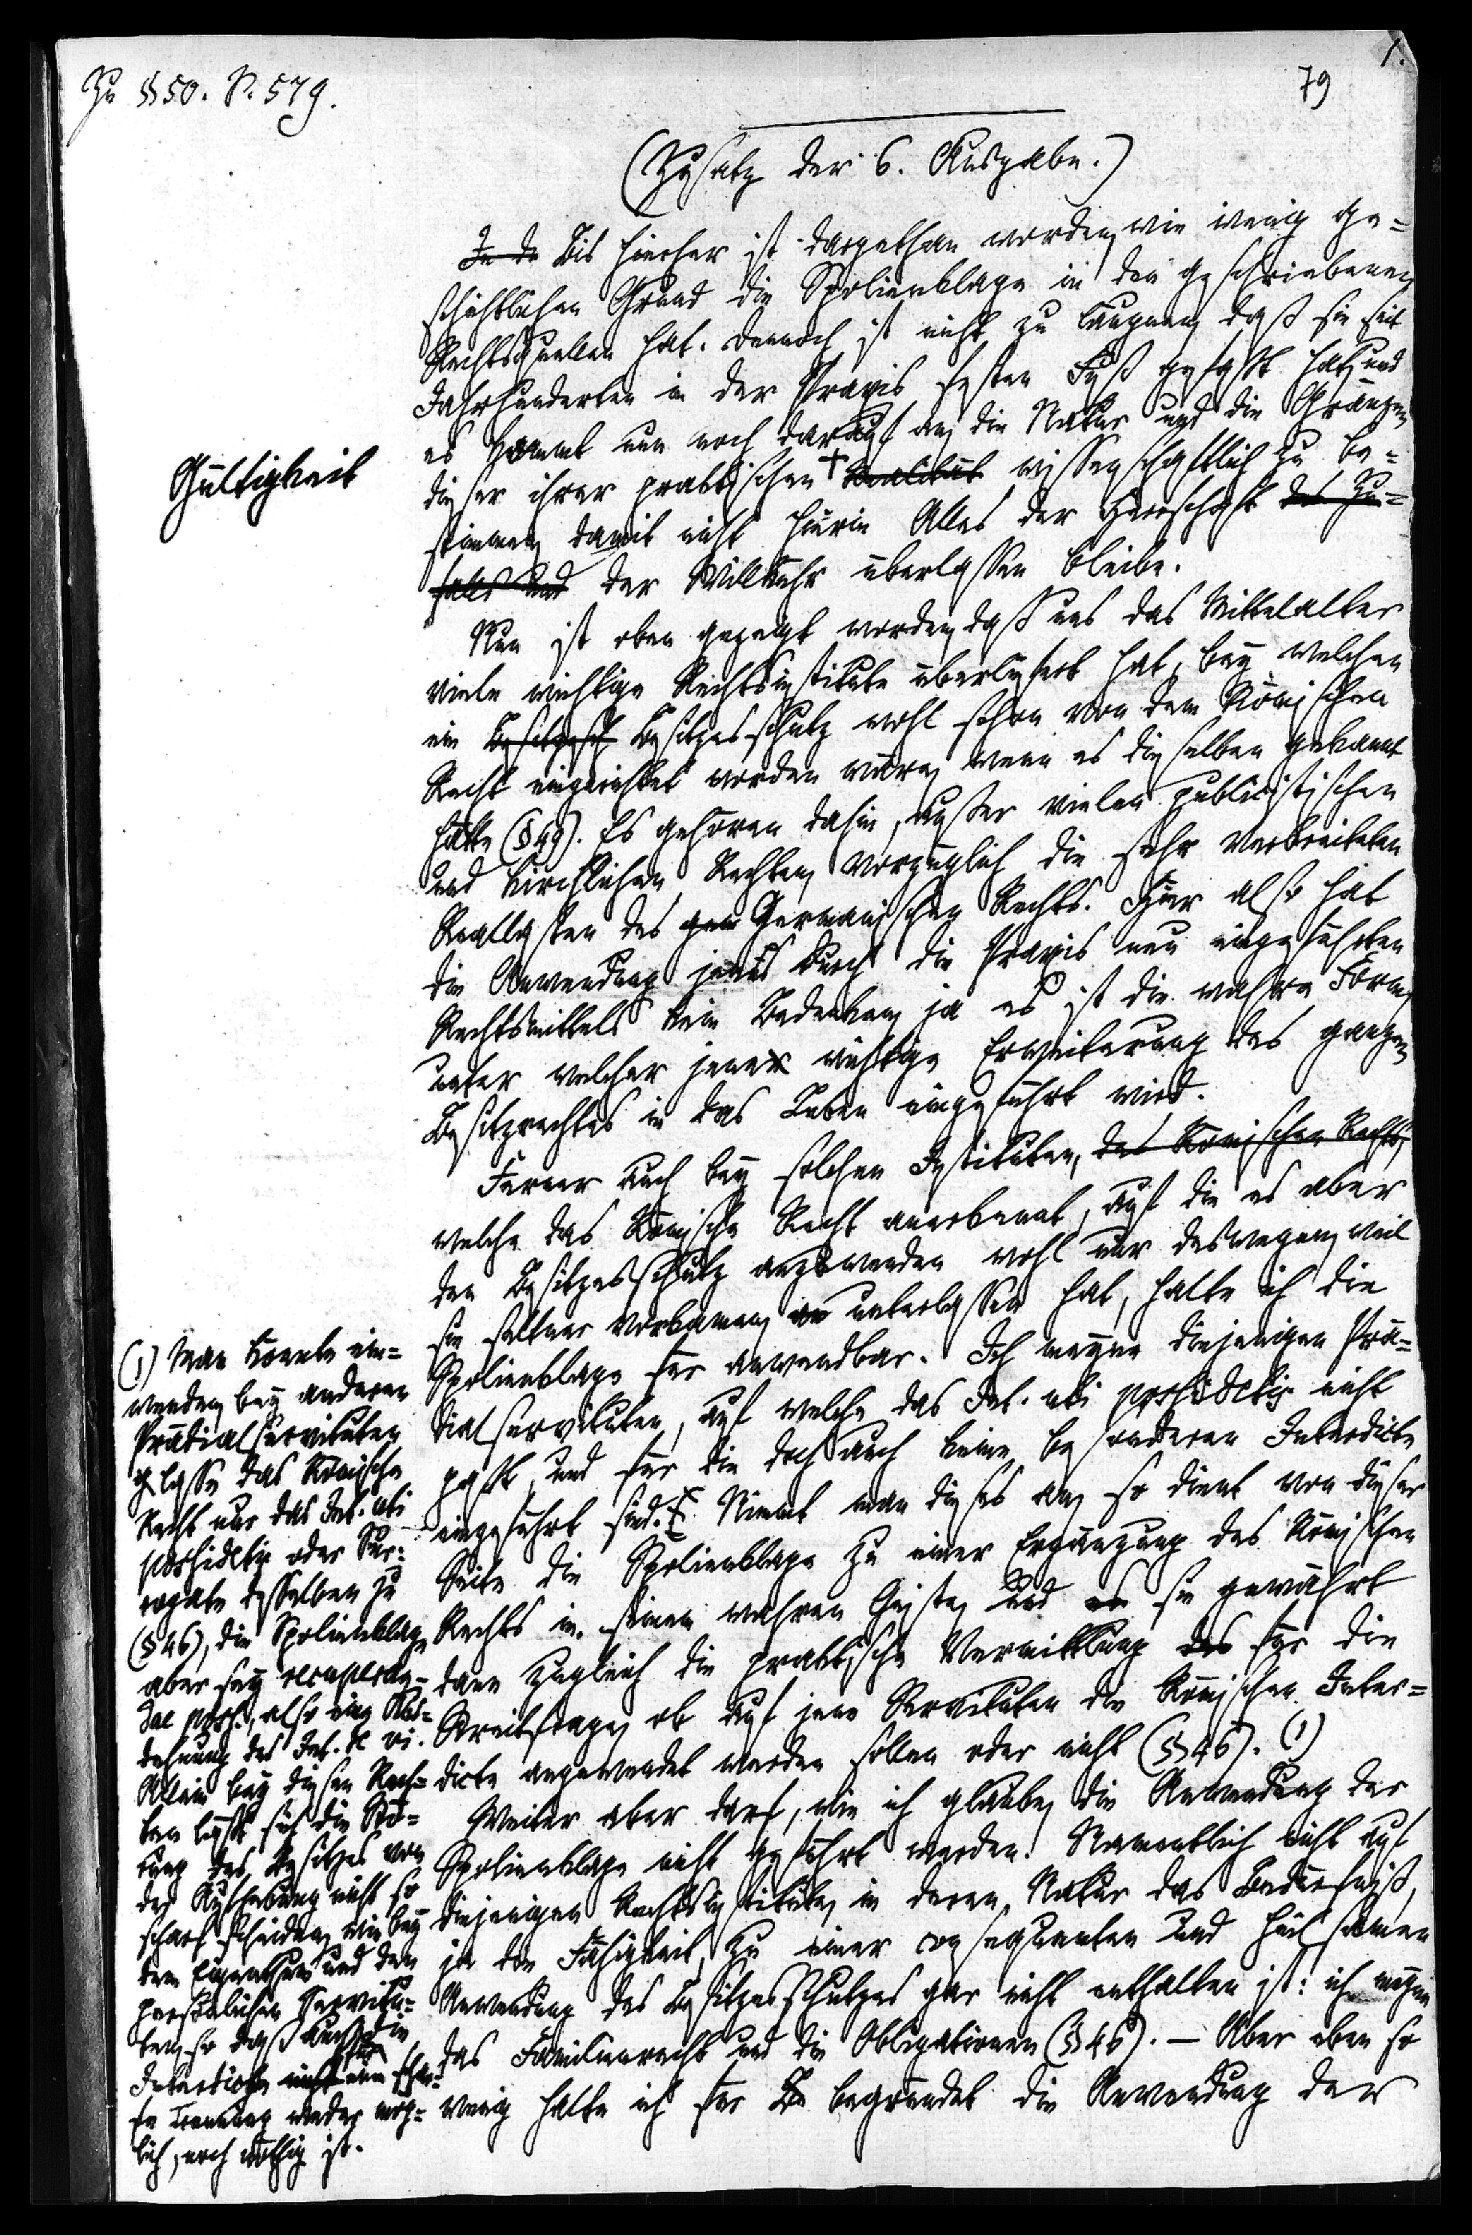 Zu §50. S. 579.
79
1.
(Zusatz der 6. Ausgabe.)
In de Bis hierher ist dargethan worden, wie wenig ge-
schichtlichen Grund die Spolienklage in den geschriebenen
Rechtsquellen hat. Dennoch ist nicht zu läugnen, daß sie seit
Jahrhunderten in der Praxis festen Fuß gefaßt hat, und
es kommt nun noch darauf an, die Natur und die Gränzen
dieser ihrer praktischen + Realität wissenschaftlich zu be-
Gültigkeit
stimmen, damit nicht hierin Alles der Herrschaft des Zu-
falls und der Willkühr überlassen bleibe.
Nun ist oben gezeigt worden, daß uns das Mittelalter
viele wichtige Rechtsinstitute überliefert hat, bey welchen
ein Besitzessch Besitzesschutz wohl schon von dem Römischen
Recht eingerichtet worden wäre, wenn es dieselben gekannt
hätte (§49). Es gehören dahin, außer vielen publicistischen
und kirchlichen Rechten, vorzüglich die sehr verbreiteten
Reallasten des ger Germanischen Rechts. Hier also hat
die Anwendung jenes durch die Praxis neu eingeführten
Rechtsmittels kein Bedenken, ja es ist die wahre Form,
unter welcher jene wichtige Erweiterung des ganzen
Besitzrechtes in das Leben eingeführt wird.
Ferner auch bey solchen Instituten, des Römischen Rechts,
welche das Römische Recht anerkennt, auf die es aber
den Besitzesschutz anzuwenden wohl nur deswegen, weil
sie seltner vorkamen, unterlassen hat, halte ich die
Spolienklage für anwendbar. Ich meyne diejenigen Prä-
dialservituten, auf welche das Int. uti possidetis nicht
paßt, und für die doch auch keine besonderen Interdicte
eingeführt sind. Nimmt man dieses an, so dient von dieser
Seite die Spolienklage zu einer Ergänzung des Römischen
Rechts in seinem wahren Geiste, und es sie gewährt
dann zugleich die praktische Vermittlung des für die
Streitfrage, ob auf jene Servituten die Römischen Inter-
dicte angewendet werden sollen oder nicht (§46). (1)
Weiter aber darf, wie ich glaube, die Anwendung der
Spolienklage nicht geführt werden. Namentlich nicht auf
diejenigen Rechtsinstitute, in deren Natur das Bedürfniß,
ja die Fähigkeit, zu einer consequenten und heilsamen
Anwendung des Besitzesschutzes gar nicht enthalten ist: ich meyne
das Familienrecht und die Obligationen (§46). — Aber eben so
wenig halte ich für begründet die Anwendung der
(1) Man könnte ein-
wenden, bey anderen
Prädialservituten
lasse das Römische
Recht nur das Int. uti
possidetis oder Sur-
rogate desselben zu
(§46), die Spolienklage
aber sey recuperan-
dae poss., also eine Aus-
dehnung des Int. de vi.
Allein bey diesen Rech-
ten läßt sich die Stö-
rung des Besitzes von
der Aufhebung nicht so
scharf scheiden, wie bey
dem Eigenthum und den
persönlichen Servitu-
ten, so daß auch die
Interdicte
fe Trennung weder mög-
lich, noch nöthig ist.